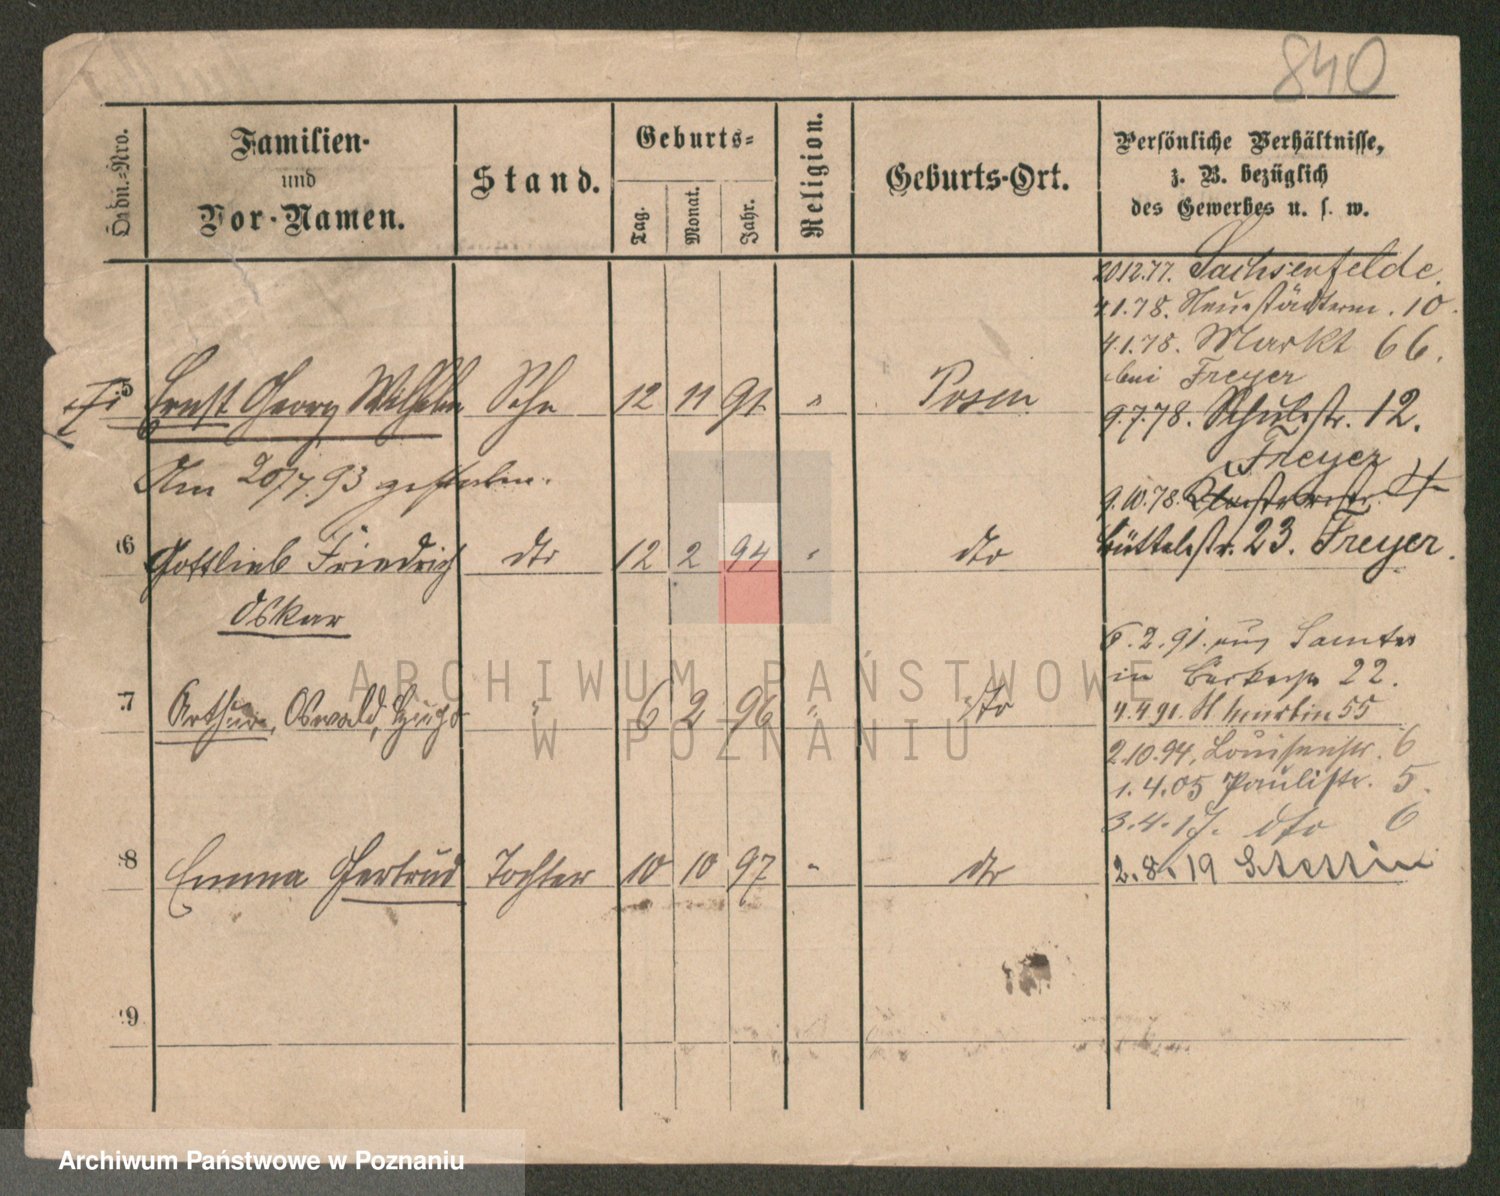 840
Ordn.-Nro.
Familien-
und
Vor-Namen.
Stand.
Geburts-
Tag.
Monat.
Jahr.
Religion.
Geburts-Ort.
Persönliche Verhältnisse,
z. B. bezüglich
des Gewerbes u. s. w.
5 Ernst Georg Wilhelm Sohn 12 11 91 " Posen
Am 20/7.93 gestorben.
6 Gottlieb Friedrich dto 12 2 94 " dto
Oskar
7 Arthur, Oswald, Hugo " 6 2 96 " dto
8 Emma Gertrud Tochter 10 10 97 " dto
9
20.12.77. Sachsenfelde.
4.1.78. Neustädterm. 10.
4.1.78. Markt 66.
bei Freyer
9.7.78. Schulstr. 12.
Freyer
9.10.78.
Büttelstr. 23. Freyer.
6.2.91. aus Samter
in 22.
4.4.91. St Martin 55
2.10.94. Louisenstr. 6
1.4.05 Paulistr. 5.
3.4.17. dto 6
2.8.19 Stettin
ARCHIWUM PAŃSTWOWE
W POZNANIU
Archiwum Państwowe w Poznaniu